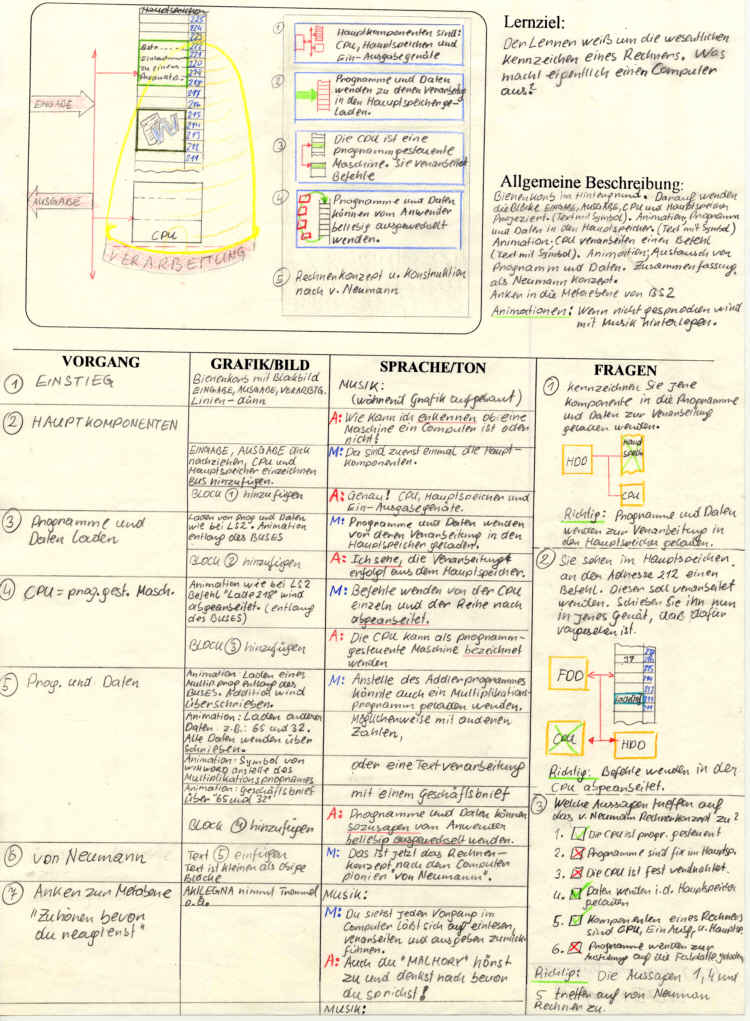 Hauptspeicher
225
224
223
222
221
220
219
218
217
216
215
214
213
212
211
Daten
zu einem
EINGABE
AUSGABE
CPU
VERARBEITUNG
1
Hauptkomponenten sind:
CPU, Hauptspeicher und
Ein-Ausgabegeräte
2
Programme und Daten
werden zu deren Verarbeitg
in den Hauptspeicher ge-
laden.
3
Die CPU ist eine
programmgesteuerte
Maschine. Sie verarbeitet
Befehle
4
Programme und Daten
können vom Anwender
beliebig ausgewechselt
werden.
5 Rechnerkonzept u. Konstruktion
nach v. Neumann
Lernziel:
Der Lerner weiß um die wesentlichen
Kennzeichen eines Rechners. Was
macht eigentlich einen Computer
aus?
Allgemeine Beschreibung:
Bienenkorb im Hintergrund. Darauf werden
die Blöcke EINGABE, AUSGABE, CPU und Hauptspeicher
Projeziert. (Text mit Symbol). Animation, Programm
und Daten in den Hauptspeicher. (Text mit Symbol)
Animation: CPU verarbeiten einen Befehl
(Text mit Symbol). Animation: Austausch von
Programm und Daten. Zusammenfassung
als Neumann Konzept.
Anker in die Metaebene von BS2
Animationen: Wenn nicht gesprochen wird
mit Musik hinterlegen.
VORGANG GRAFIK/BILD SPRACHE/TON FRAGEN
1 EINSTIEG
Bienenkorb mit Blockbild
EINGABE, AUSGABE, VERARBTG.
Linien - dünn
MUSIK:
(während Grafik aufgebaut)
2 HAUPTKOMPONENTEN
A: Wie kann ich erkennen ob eine
Maschine ein Computer ist oder
nicht?
EINGABE, AUSGABE dick
nachziehen, CPU und
Hauptspeicher einzeichnen
BUS hinzufügen.
M: Da sind zuerst einmal die Haupt-
komponenten.
BLOCK 1 hinzufügen
A: Genau! CPU, Hauptspeicher und
Ein-Ausgabegeräte.
3 Programme und
Daten laden
Laden von Prog und Daten
wie bei LS2. Animation
entlang des BUSES
M: Programme und Daten werden
von deren Verarbeitung in den
Hauptspeicher geladen.
BLOCK 2 hinzufügen
A: Ich sehe, die Verarbeitung
erfolgt aus dem Hauptspeicher.
4 CPU = prog.gest. Masch.
Animation wie bei LS2
Befehl "Lade 218" wird
abgearbeitet. (entlang
des BUSES)
M: Befehle werden von der CPU
einzeln und der Reihe nach
abgearbeitet.
BLOCK 3 hinzufügen
A: Die CPU kann als programm-
gesteuerte Maschine bezeichnet
werden
5 Prog. und Daten
Animation: Laden eines
Multipl.prog entlang des
BUSES. Addition wird
überschrieben.
M: Anstelle des Addierprogrammes
könnte auch ein Multiplikations-
programm geladen werden.
Animation: Laden anderer
Daten. z.B.: 65 und 32.
Alle Daten werden über
schrieben.
Möglicherweise mit anderen
Zahlen,
Animation: Symbol von
WINWORD anstelle des
Multiplikationsprogrammes
oder eine Textverarbeitung
Animation: Geschäftsbrief
über "65 und 32"
mit einem Geschäftsbrief
BLOCK 4 hinzufügen
A: Programme und Daten können
sozusagen vom Anwender
beliebig ausgewechselt werden.
6 von Neumann
Text 5 einfügen
Text ist kleiner als obige
Blöcke
M: Das ist jetzt das Rechner-
konzept nach dem Computer
pionier "von Neumann".
7 Anker zur Metaebene
"Zuhören bevor
du reagierst"
AKILEGNA nimmt Trommel
Musik:
M: Du siehst jeden Vorgang im
Computer läßt sich auf einlesen,
verarbeiten und ausgeben zurück-
führen.
A: Auch du "MALHORY" hörst
zu und denkst nach bevor
du sprichst!
MUSIK:
1 Kennzeichnen Sie jene
Komponente in die Programme
und Daten zur Verarbeitung
geladen werden.
HDD
Haupt
speich
CPU
Richtig: Programme und Daten
werden zur Verarbeitung in
den Hauptspeicher geladen.
2 Sie sehen im Hauptspeicher
an der Adresse 212 einen
Befehl. Dieser soll verarbeitet
werden. Schieben Sie ihn nun
in jenes Gerät, daß dafür
vorgesehen ist.
FDD
CPU
HDD
Richtig: Befehle werden in der
CPU abgearbeitet.
3 Welche Aussagen treffen auf
das v. Neumann Rechnerkonzept zu?
1. Die CPU ist progr. gesteuert
2. Programme sind fix im Hauptsp.
3. Die CPU ist fest verdrahtet.
4. Daten werden i.d. Hauptspeicher
geladen
5. Komponenten eines Rechners
sind CPU, Ein Ausg. u. Hauptsp.
6. Programme werden zur
auf die Festplatte geladen
Richtig: Die Aussagen 1, 4 und
5 treffen auf von Neuman
Rechner zu.